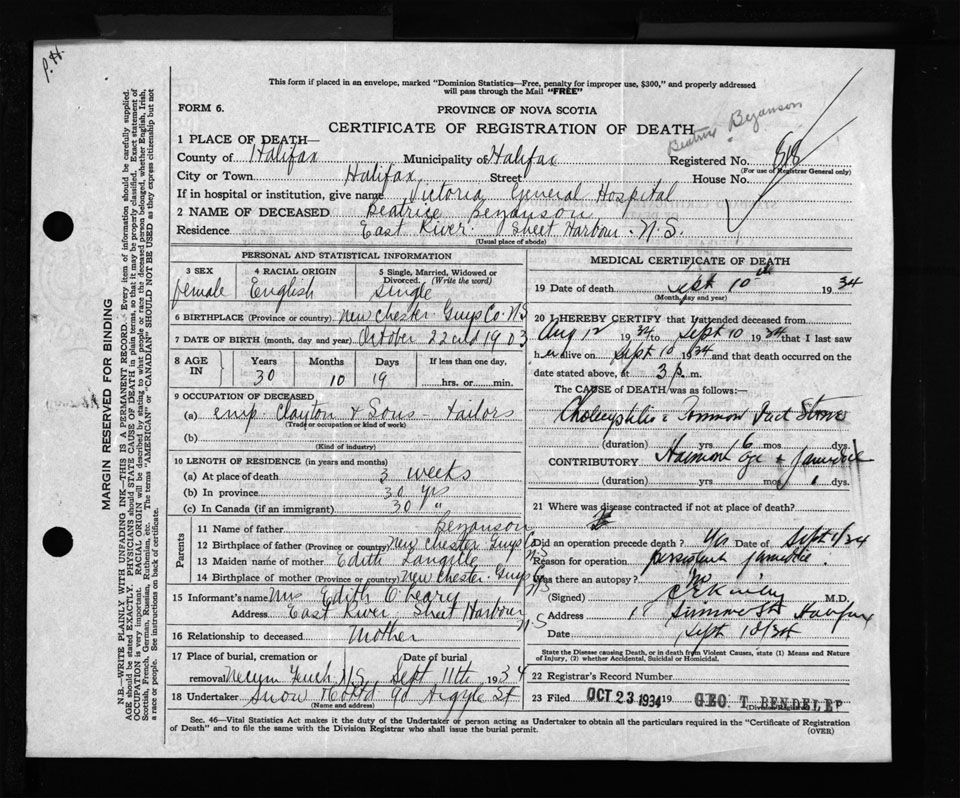 P.H.
This form if placed in an envelope, marked "Dominion Statistics—Free, penalty for improper use, $300," and properly addressed
will pass through the Mail "FREE"
FORM 6.
PROVINCE OF NOVA SCOTIA
CERTIFICATE OF REGISTRATION OF DEATH
Beatrice Bezanson
1 PLACE OF DEATH—
County of Halifax Municipality of Halifax Registered No. 818
(For use of Registrar General only)
City or Town Halifax Street House No.
If in hospital or institution, give name Victoria General Hospital
2 NAME OF DECEASED Beatrice Bezanson
Residence East River. Sheet Harbour. N.S.
(Usual place of abode)
PERSONAL AND STATISTICAL INFORMATION
3 SEX 4 RACIAL ORIGIN 5 Single, Married, Widowed or Divorced. (Write the word)
female English Single
6 BIRTHPLACE (Province or country) New Chester Guys Co. N.S
7 DATE OF BIRTH (month, day and year) October 22nd 1903
8 AGE IN Years Months Days If less than one day,
30 10 19 hrs. or min.
9 OCCUPATION OF DECEASED
(a) emp. Clayton & Sons - tailors
(Trade or occupation or kind of work)
(b)
(Kind of industry)
10 LENGTH OF RESIDENCE (in years and months)
(a) At place of death 3 weeks
(b) In province 30 yrs
(c) In Canada (if an immigrant) 30 "
Parents
11 Name of father Bezanson
12 Birthplace of father (Province or country) New Chester Guys Co N.S
13 Maiden name of mother Edith Langille
14 Birthplace of mother (Province or country) New Chester. Guys Co N.S
15 Informant's name Mrs Edith O'Leary
Address East River Sheet Harbour N-S
16 Relationship to deceased Mother
17 Place of burial, cremation or removal Necum Teuch N.S. Date of burial Sept 11th 1934
18 Undertaker Snow & Co Ltd 90 Argyle St
(Name and address)
MEDICAL CERTIFICATE OF DEATH
19 Date of death Sept 10th 1934
(Month, day and year)
20 I HEREBY CERTIFY that I attended deceased from
Aug 12 1934 to Sept 10 1934 that I last saw
her alive on Sept 10 1934 and that death occurred on the
date stated above, at 3 p. m.
The CAUSE OF DEATH was as follows:—
Common Duct Stones
(duration) yrs. 6 mos. dys.
CONTRIBUTORY & Jaundice
(duration) yrs. mos. dys.
21 Where was disease contracted if not at place of death?
Did an operation precede death? Date of Sept 4/34
Reason for operation persistent jaundice.
Was there an autopsy? No
(Signed) M.D.
Address Summer St Halifax
Date Sept 10/34
State the Disease causing Death, or in death from Violent Causes, state (1) Means and Nature of Injury, (2) whether Accidental, Suicidal or Homicidal.
22 Registrar's Record Number
23 Filed OCT 23 1934 19 GEO. T. BENDELEP
(Division Registrar)
Sec. 46—Vital Statistics Act makes it the duty of the Undertaker or person acting as Undertaker to obtain all the particulars required in the "Certificate of Registration
of Death" and to file the same with the Division Registrar who shall issue the burial permit.
(OVER)
MARGIN RESERVED FOR BINDING
N.B.—WRITE PLAINLY WITH UNFADING INK—THIS IS A PERMANENT RECORD. Every item of information should be carefully supplied.
AGE should be stated EXACTLY. PHYSICIANS should STATE CAUSE OF DEATH in plain terms, so that it may be properly classified. Exact statement of
OCCUPATION is very important. RACIAL ORIGIN will be described by stating to what people or race the deceased person belonged, whether English, Irish,
Scottish, French, German, Russian, Ruthenian, etc. The terms "AMERICAN" or "CANADIAN" SHOULD NOT BE USED as they express citizenship but not
a race or people. See instructions on back of certificate.